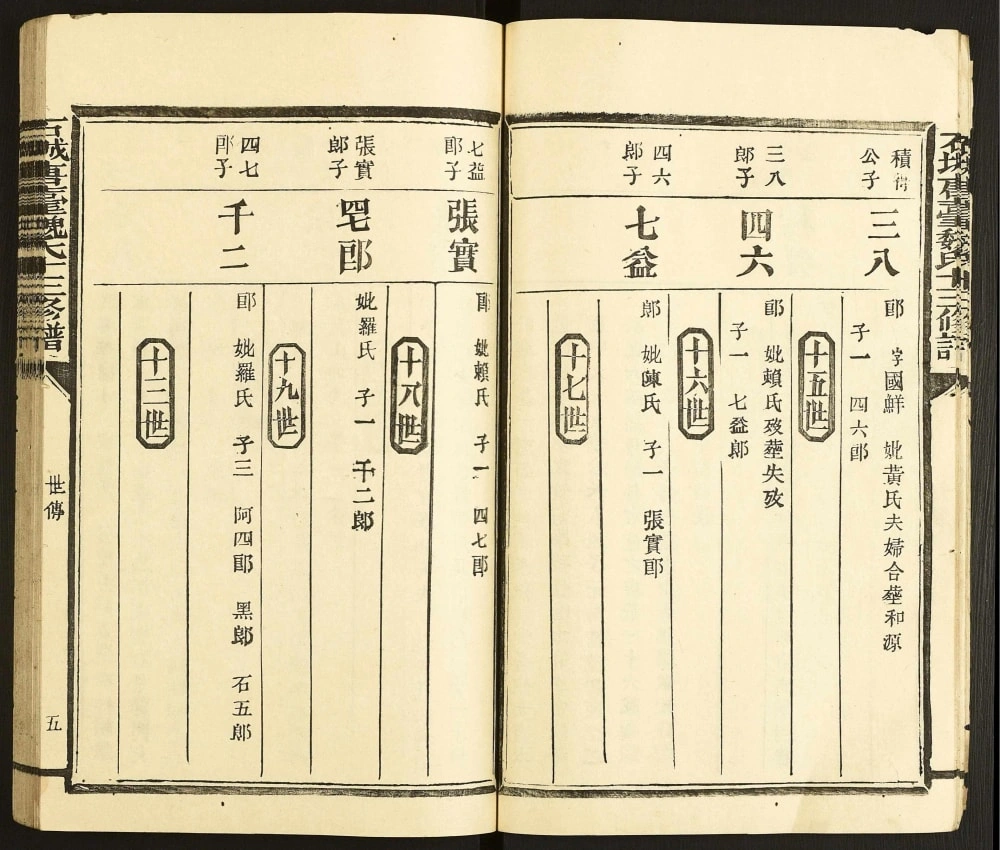 積
公子
三八
郎 字國鮮 妣黃氏夫婦合塟和源
子一 四六郎
十五世
三八
郎子
四六
郎 妣賴氏歿塟失攷
子一 七益郎
十六世
四六
郎子
七益
郎 妣陳氏 子一 張實郎
十七世
七益
郎子
張實
郎 妣賴氏 子一 四七郎
十八世
張實
郎子
四七郎
妣羅氏 子一 千二郎
十九世
四七
郎子
千二
郎 妣羅氏 子三 阿四郎 黑郎 石五郎
十三世
石城臺魏氏十三修譜
世傳
五